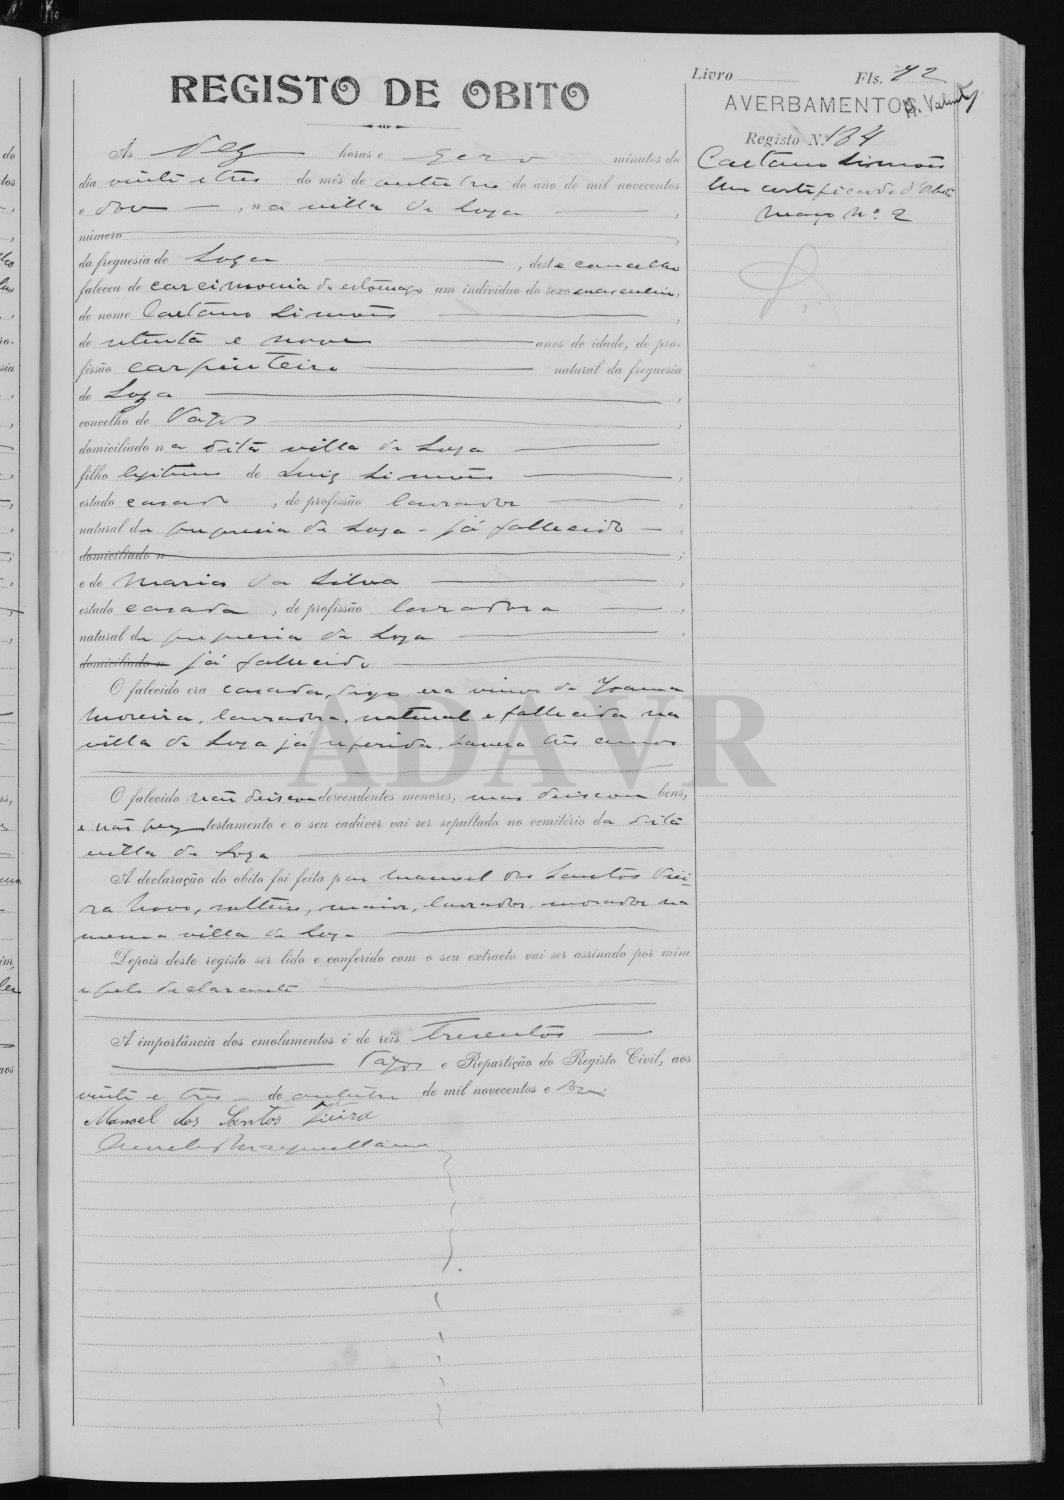 REGISTO DE OBITO
Livro
Fls. 72
AVERBAMENTOS
Registo N.º 134
Caetano Simões
Um certificado d'obito
Maço Nº 2
Ás dez horas e zero minutos do
dia vinte e tres do mês de outubro do ano de mil novecentos
e doze, na villa da Soza,
número
da freguesia de Soza, deste concelho
faleceu de carcimonia do estomago um individuo do sexo masculino,
de nome Caetano Simões,
de setenta e nove anos de idade, de pro-
fissão carpinteiro natural da freguesia
de Soza,
concelho de Vagos,
domiciliado na dita villa de Soza
filho legitimo de Luiz Simões,
estado casado, de profissão lavrador,
natural da freguesia de Soza - já fallecido
domiciliado n;
e de Maria da Silva,
estado casada, de profissão lavradora,
natural da freguesia de Soza,
domiciliado n já fallecida
O falecido era casado, digo era viuvo de Joanna
Moreira, lavradora, natural e fallecida na
villa de Soza já referida, havera três annos
O falecido não deixou descendentes menores, mas deixou bens,
e não fez testamento e o seu cadáver vai ser sepultado no cemitério da dita
villa de Soza
A declaração do obito foi feita por Manuel dos Santos Viei-
ra Novo, solteiro, maior, lavrador, morador na
mesma villa de Soza
Depois deste registo ser lido e conferido com o seu extracto vai ser assinado por mim
e pelo declarante
A importância dos emolumentos é de réis Trezentos
Vagos e Repartição do Registo Civil, aos
vinte e tres de outubro de mil novecentos e doze
Manoel dos Santos Vieira
ADAVR